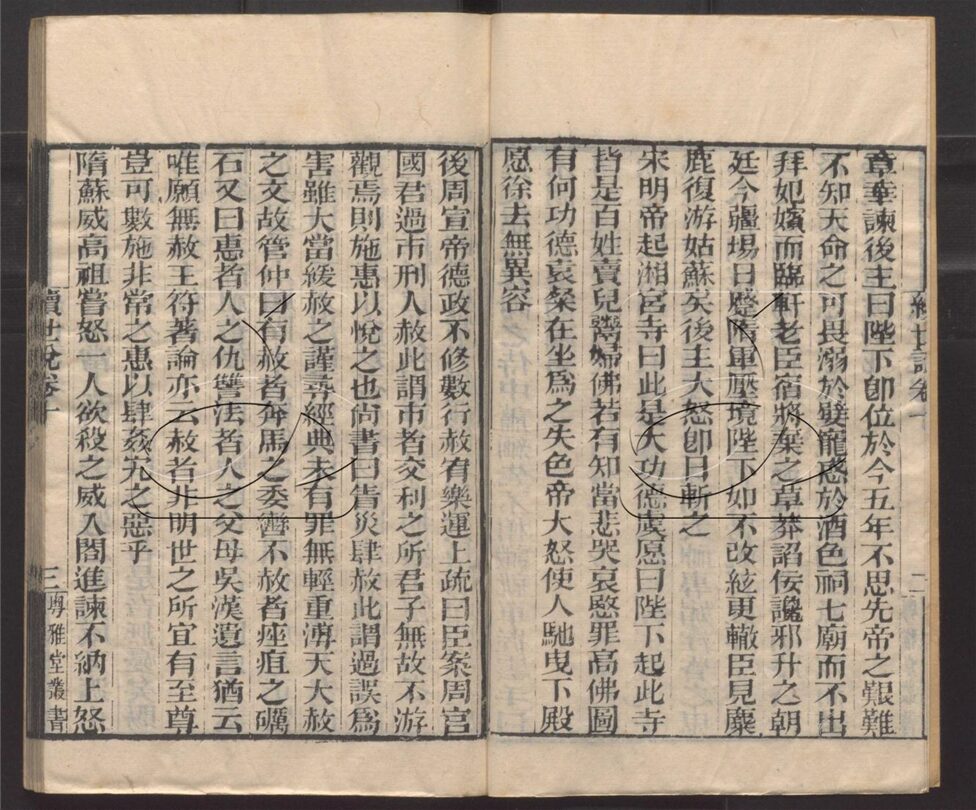 章華諫後主曰陛下卽位於今五年不思先帝之艱難
不知天命之可畏溺於嬖寵惑於酒色祠七廟而不出
拜妃嬪而臨軒老臣宿將棄之草莽諂佞讒邪升之朝
廷今疆場日蹙隋軍壓境陛下如不改絃更轍臣見麋
鹿復游姑蘇矣後主大怒卽日斬之
宋明帝起湘宮寺曰此是大功德虞愿曰陛下起此寺
皆是百姓賣兒鬻婦佛若有知當悲哭哀愍罪高佛圖
有何功德袁粲在坐爲之失色帝大怒使人馳曳下殿
愿徐去無異容
後周宣帝德政不修數行赦宥樂運上疏曰臣案周官
國君過市刑人赦此謂市者交利之所君子無故不游
觀焉則施惠以悅之也尙書曰眚災肆赦此謂過誤爲
害雖大當緩赦之謹尋經典未有罪無輕重溥天大赦
之文故管仲曰有赦者奔馬之委轡不赦者痤疽之礪
石又曰惠者人之仇讐法者人之父母吳漢遺言猶云
唯願無赦王符著論亦云赦者非明世之所宜有至尊
豈可數施非常之惠以肆姦宄之惡乎
隋蘇威高祖嘗怒一人欲殺之威入閤進諫不納上怒
續世說卷十
三
粵雅堂叢書